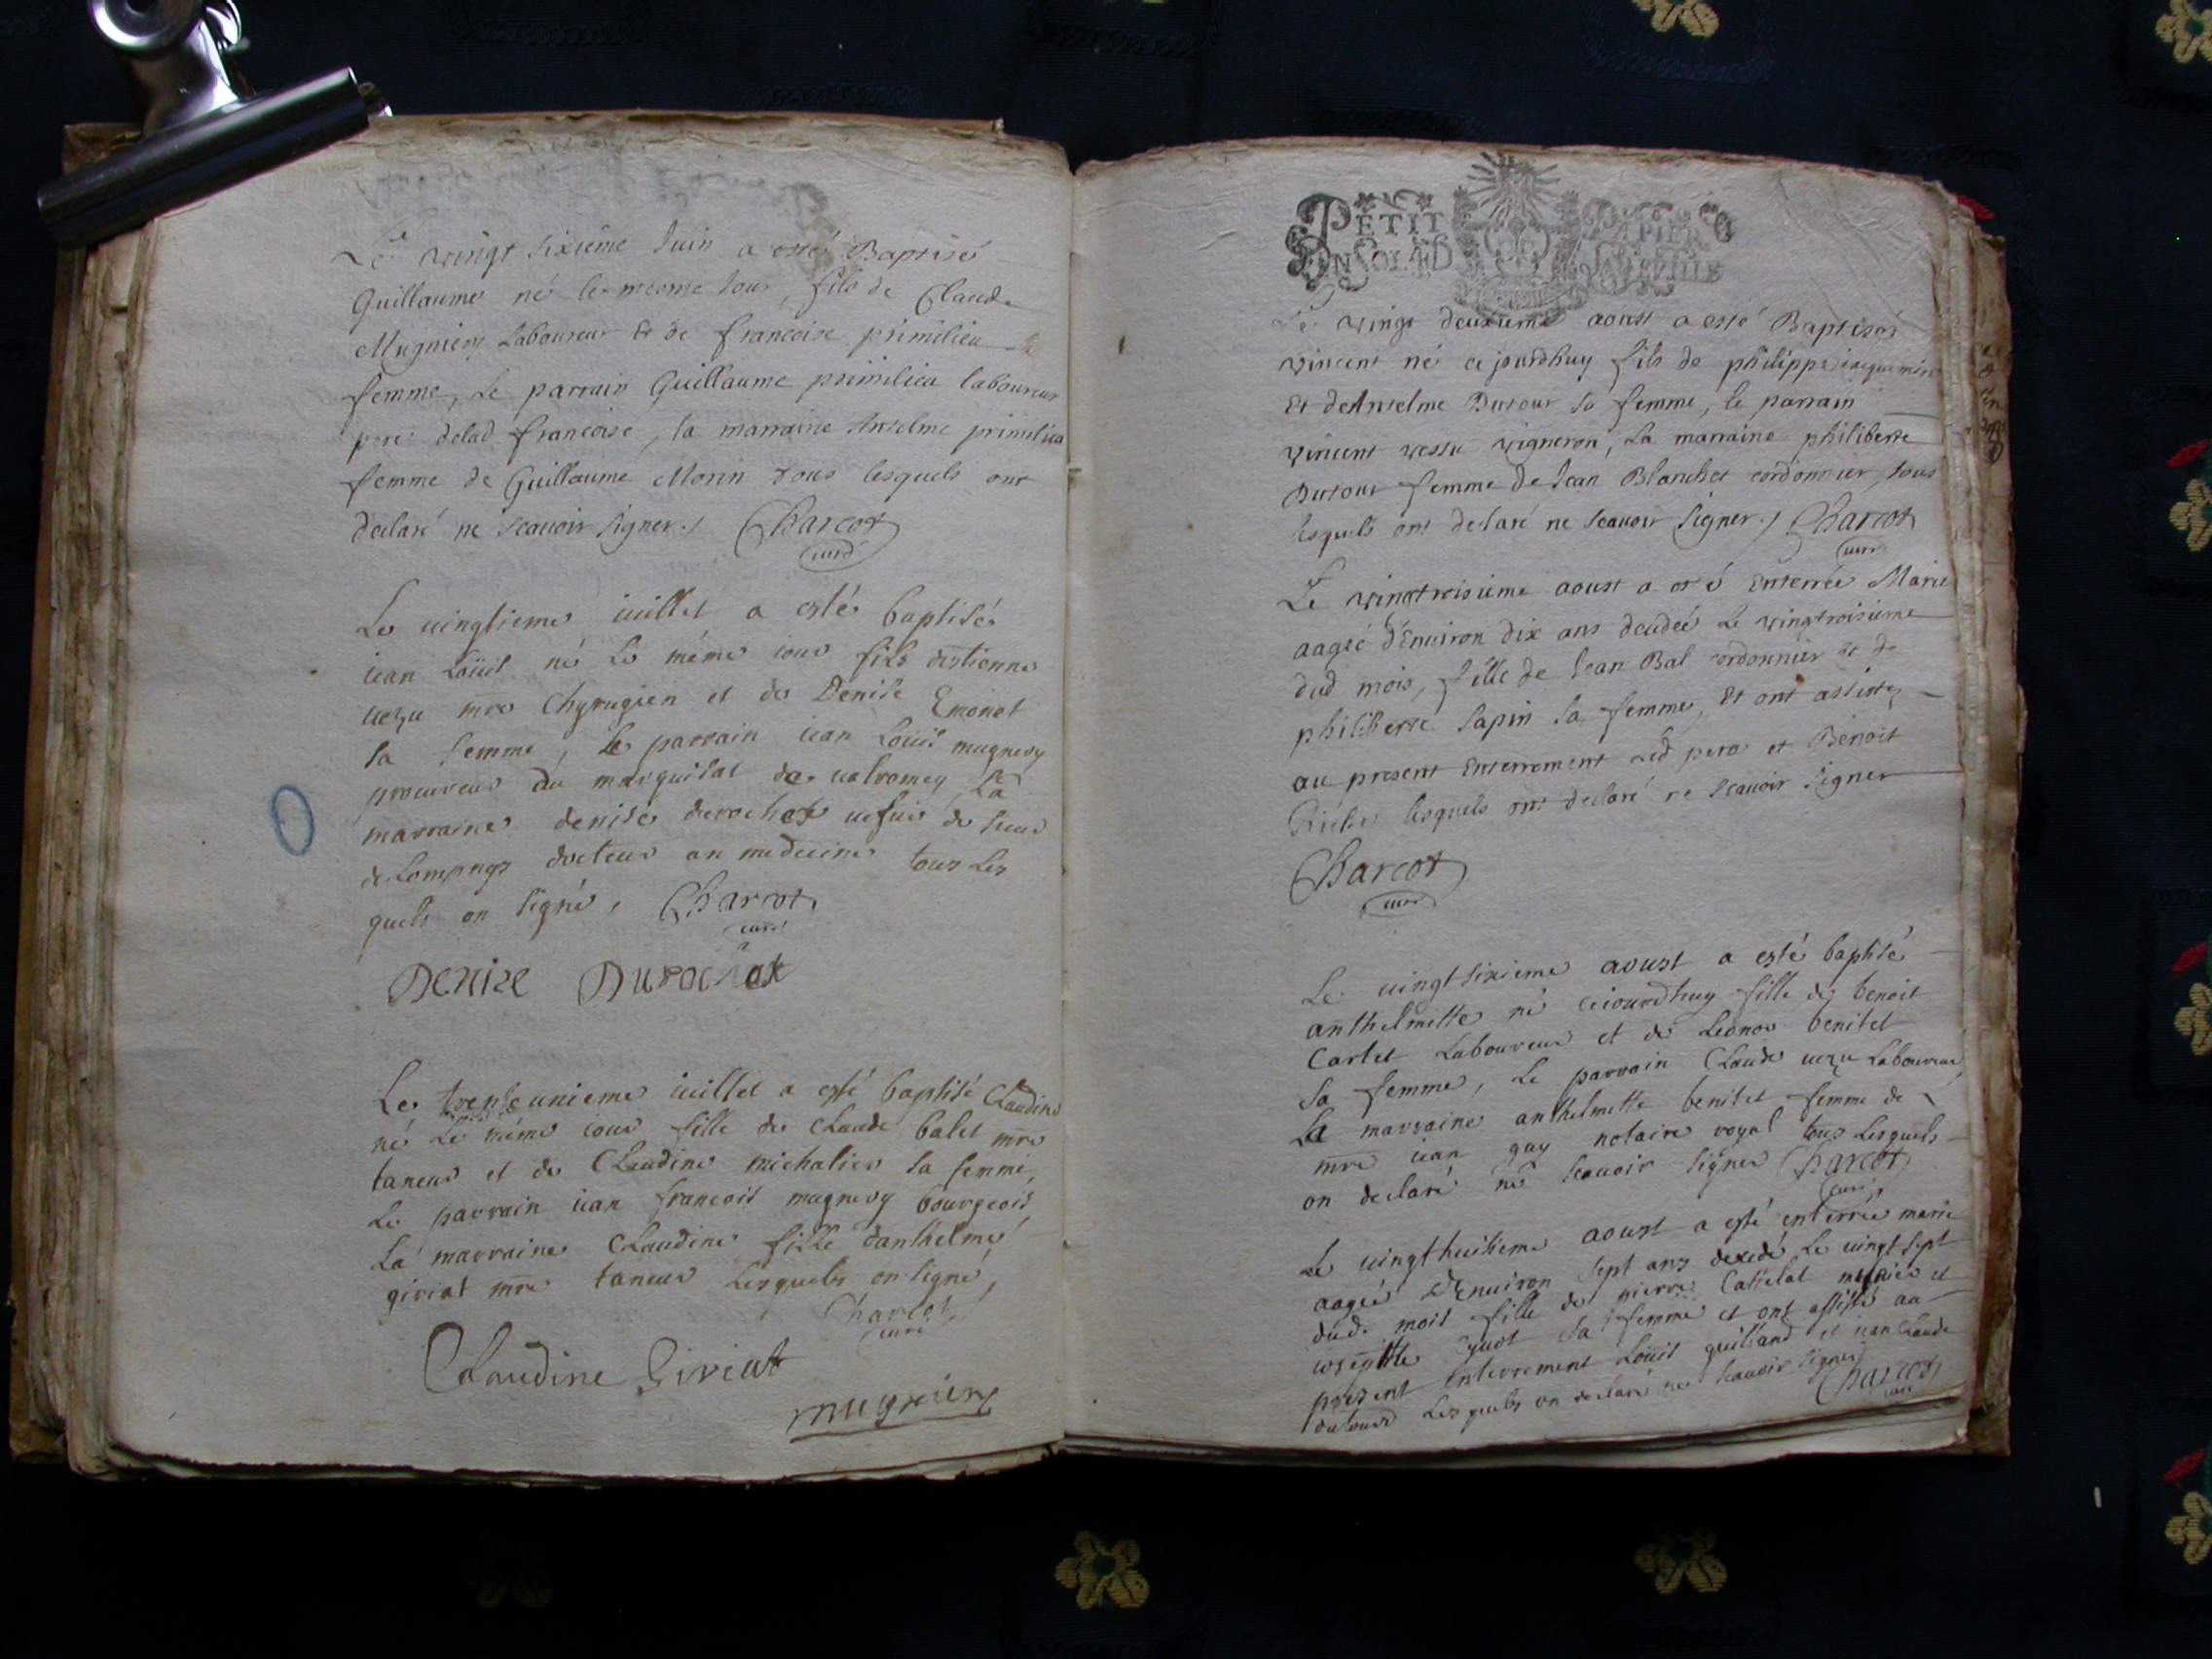 Le vingt sixieme Juin a esté Baptisé
Guillaume né le mesme Jour, fils de Claude
Mugniery Laboureur & de francoise primilieu sa
femme, Le parrain Guillaume primilieu laboureur
pere delad francoise, la marraine Antelme primilieu
femme de Guillaume Morin tous lesquels ont
declaré ne scauoir signer. / Charcot
curé
Le uingtieme iuillet a esté baptisé
iean Loüis né Le méme iour fils destienne
uezu mre Chyrugien et de Denise Emonet
sa femme, le parrain iean Loüis mugnery
procureur du marquisat de ualromey La
marraine denise derochet uefue de sieur
de Lompnes docteur an medecine tous Les
quels on signé, Charcot
curé
Denise Durochat
Le trente unieme iuillet a esté baptisé Claudine
né Le méme iour fille de Claude balet mre
taneur et de Claudine michalier sa femme,
Le parrain iean francois mugnery bourgeois
La marraine Claudine fille danthelme
giriat mre taneur Lesquels on signé,
Charcot
curé
Claudine Giriat
mugniery
PETIT PAPIER
UN SOL 4D LA FEVILLE
Le vingt deuxieme aoust a esté Baptisé
vincent né ce jourdhuy fils de philippe iaquemin
Et deAntelme Dutour sa femme, le parrain
vincent vessu vigneron, La marraine philiberte
Dutour femme de Jean Blanchet cordonnier, tous
lesquels ont declaré ne scauoir signer. / Charcot
curé
Le vingtroisieme aoust a esté Enterrée Marie
aagée d'Enuiron dix ans decedeé Le vingtroisieme
dud mois, fille de Jean Bal cordonnier & de
philiberte Sapin sa femme, Et ont assistez
au present Enterrement Led pere et Benoit
lesquels ont declaré ne scauoir signer
Charcot
curé
Le uingt sixieme aoust a esté baptisé
anthelmette né ceiourdhuy fille de benoit
Cartet Laboureur et de Leonor benitet
sa femme, Le parrain Claude uezu Laboureur,
La marraine anthelmette benitet femme de
mre iean guy notaire royal tous Lesquels
on declaré ne scauoir signer Charcot
curé
Le uingthuitieme aoust a esté enterrée marie
aagée d'Enuiron sept ans decedé Le uingt sept
dud. mois fille de pierre Catielat munier et
guiot sa femme et ont assisté au
present enterrement Loüis guilland et iean Claude
dutour Lesquels on declaré ne scauoir signer
Charcot
curé